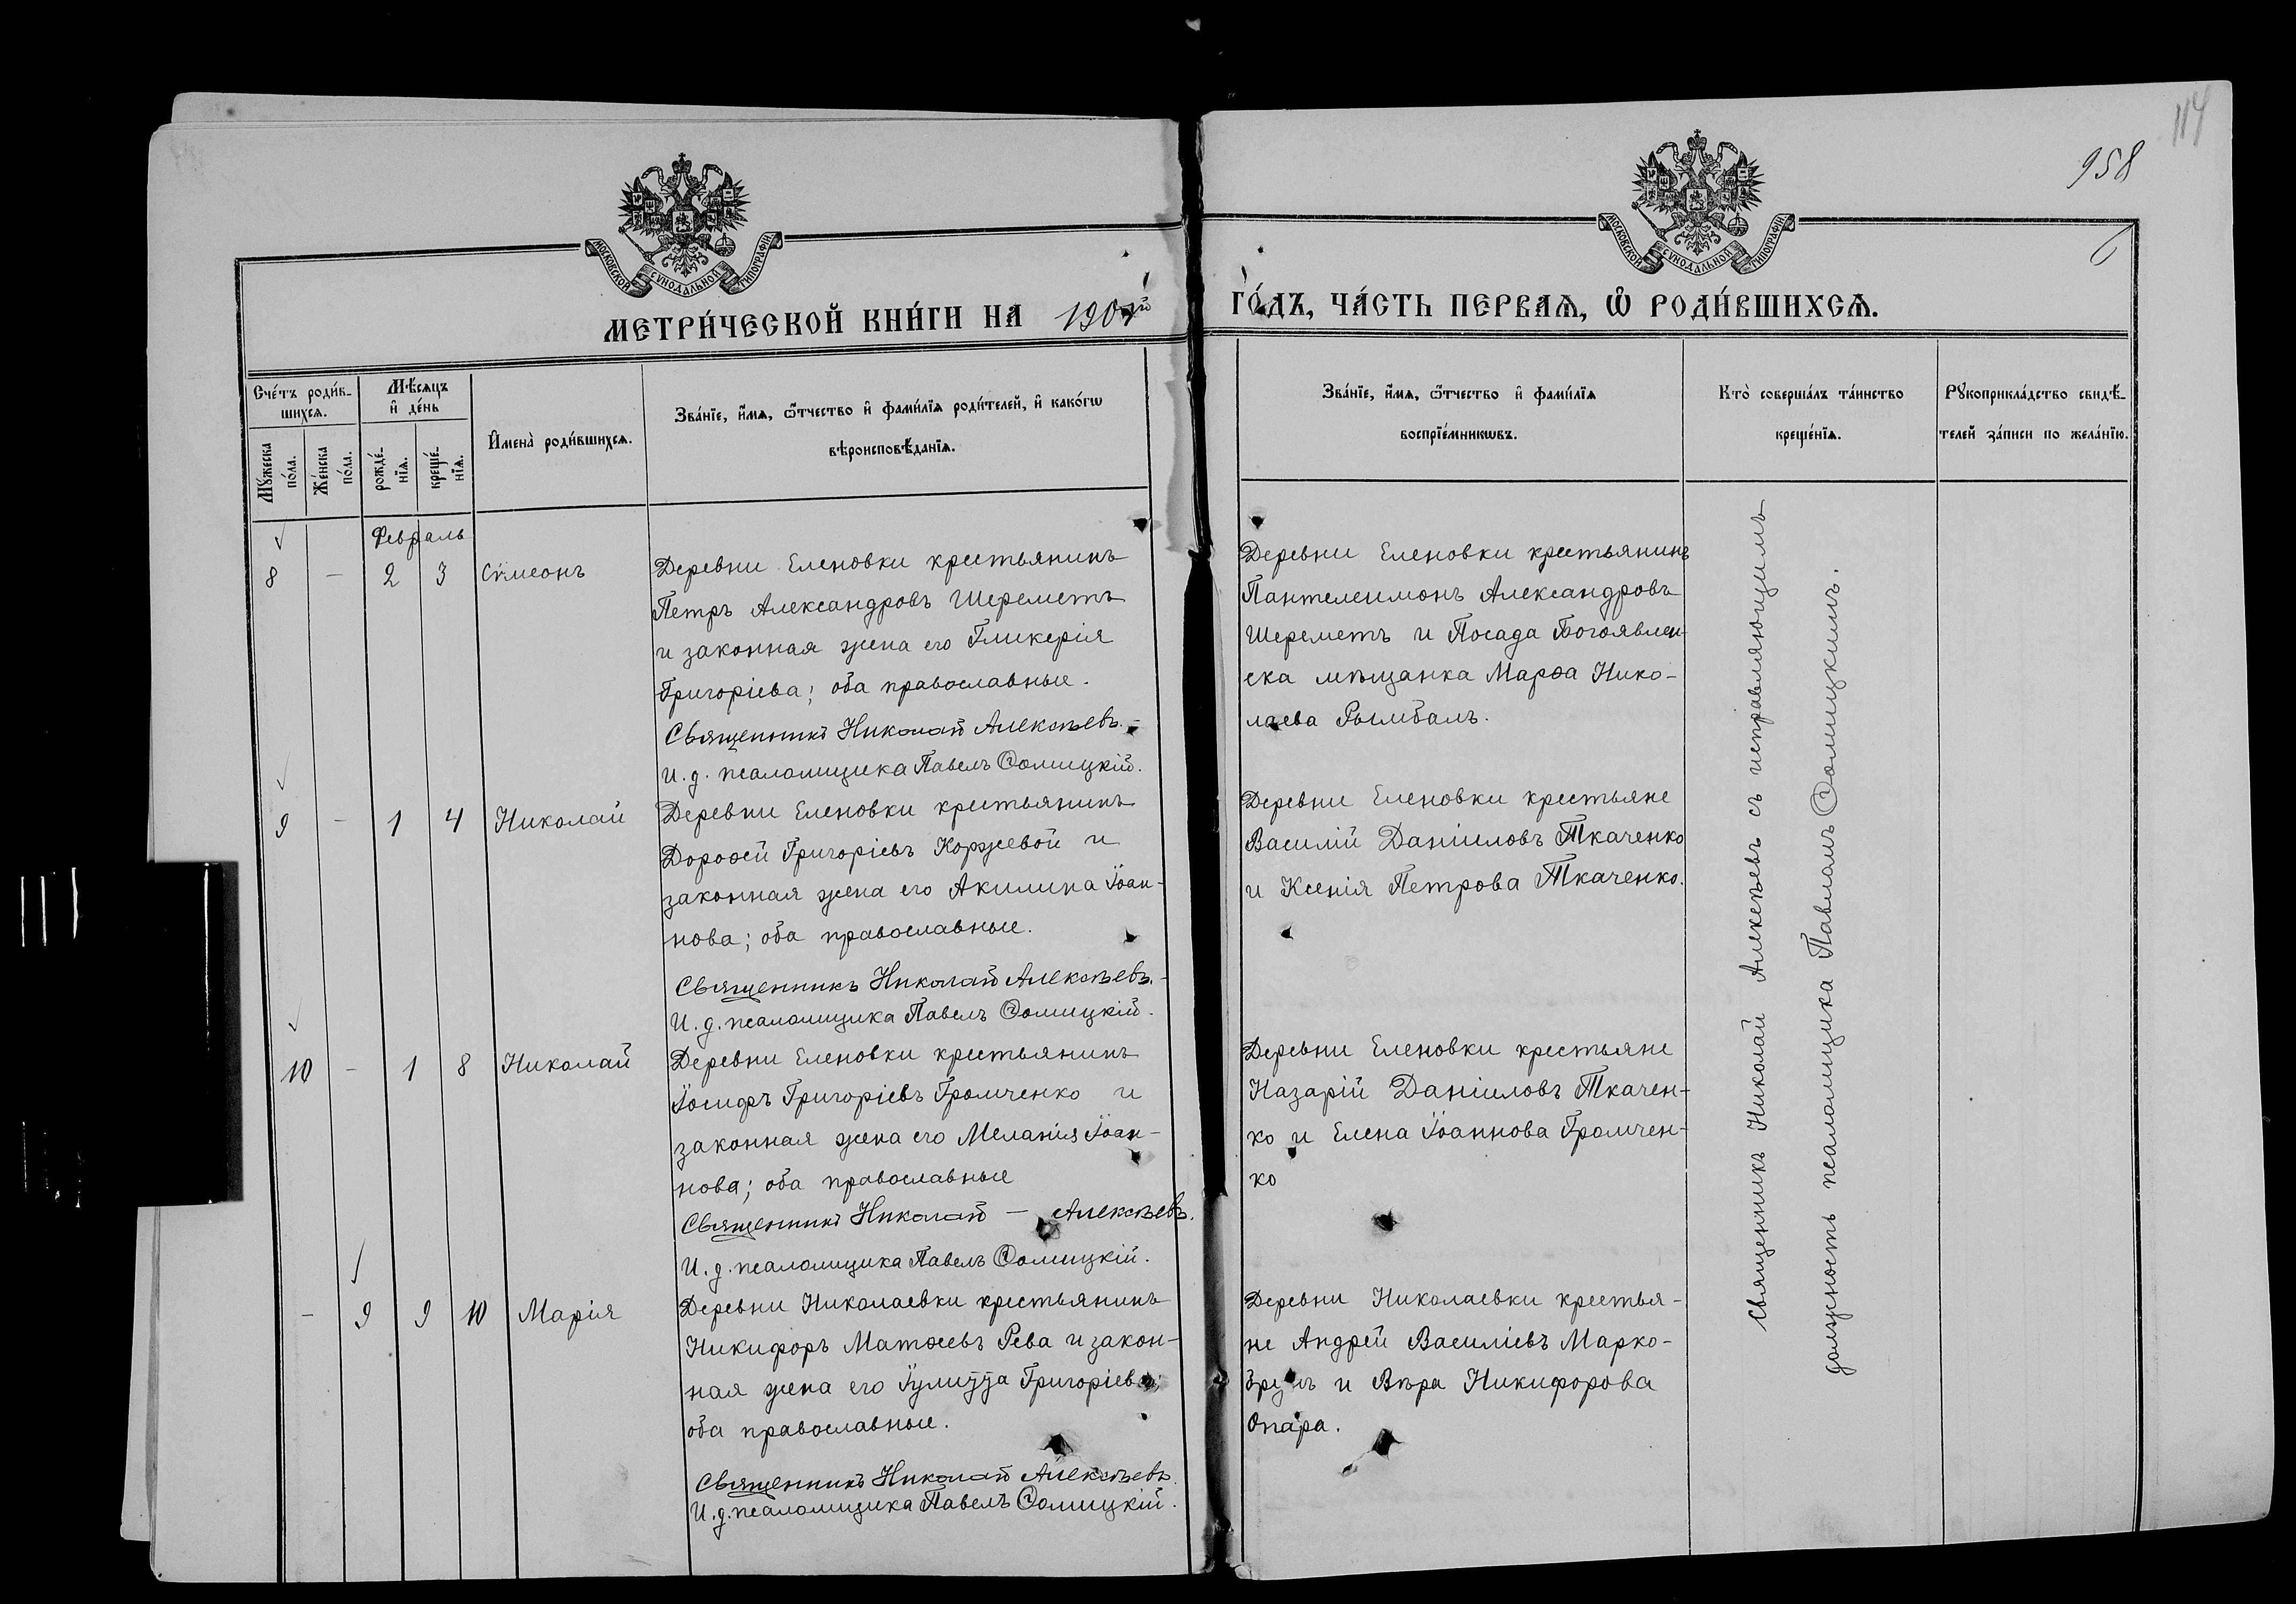 114
958
6
МОСКОВСКОЙ СѴНОДАЛЬНОЙ ТИПОГРАФІИ
МОСКОВСКОЙ СѴНОДАЛЬНОЙ ТИПОГРАФІИ
МЕТРИ́ЧЕСКОЙ КНИ́ГИ НА
ГО́ДЪ, ЧА́СТЬ ПЕРВАѦ, Ѡ РОДИ́ВШИХСѦ.
Сче́тъ роди́в-
шихсѧ.
Мꙋ́жеска
по́ла.
Же́нска
по́ла.
Мѣ́сѧцъ
и҆ де́нь
рожде́-
нїѧ.
креще́-
нїѧ.
И҆мена̀ роди́вшихсѧ.
Зва́нїе, и҆́мѧ, ѻ҆́тчество и҆ фами́лїѧ роди́телей, и҆ како́гѡ
вѣроисповѣ́данїѧ.
Зва́нїе, и҆́мѧ, ѻ҆́тчество и҆ фами́лїѧ
воспрїе́мникѡвъ.
Кто̀ соверша́лъ та́инство
креще́нїѧ.
Рꙋкоприкла́дство свидѣ́-
телей за́писи по жела́нїю.
Февраль
8 – 2 3 Сѵмеонъ
Деревни Еленовки крестьянинъ
Петръ Александровъ Шереметъ
и законная жена его Гликерія
Григоріева; оба православные.
Священникъ Николай Алексѣевъ.
И. д. псаломщика Павелъ Ѳомицкій.
Деревни Еленовки крестьянинъ
Пантелеимонъ Александровъ
Шереметъ и Посада Богоявлен-
ска мѣщанка Марѳа Нико-
лаева Рымбалъ.
9 – 1 4 Николай
Деревни Еленовки крестьянинъ
Дороѳей Григоріевъ Коржевой и
законная жена его Акилина Іоан-
нова; оба православные.
Священникъ Николай Алексѣевъ.
И. д. псаломщика Павелъ Ѳомицкій.
Деревни Еленовки крестьяне
Василій Даніиловъ Ткаченко
и Ксенія Петрова Ткаченко.
10 – 1 8 Николай
Деревни Еленовки крестьянинъ
Іосифъ Григоріевъ Громченко и
законная жена его Меланія Іоан-
нова; оба православные
Священникъ Николай – Алексѣевъ.
И. д. псаломщика Павелъ Ѳомицкій.
Деревни Еленовки крестьяне
Назарій Даніиловъ Ткачен-
ко и Елена Іоаннова Громчен-
ко
– 9 9 10 Марія
Деревни Николаевки крестьянинъ
Никифоръ Матѳеевъ Рева и закон-
ная жена его Іулитта Григоріева;
оба православные.
Священникъ Николай Алексѣевъ.
И. д. псаломщика Павелъ Ѳомицкій.
Деревни Николаевки крестья-
не Андрей Василіевъ Марко-
и Вѣра Никифорова
Опара.
Священникъ Николай Алексѣевъ съ исправляющимъ
должность псаломщика Павломъ Ѳомицкимъ.